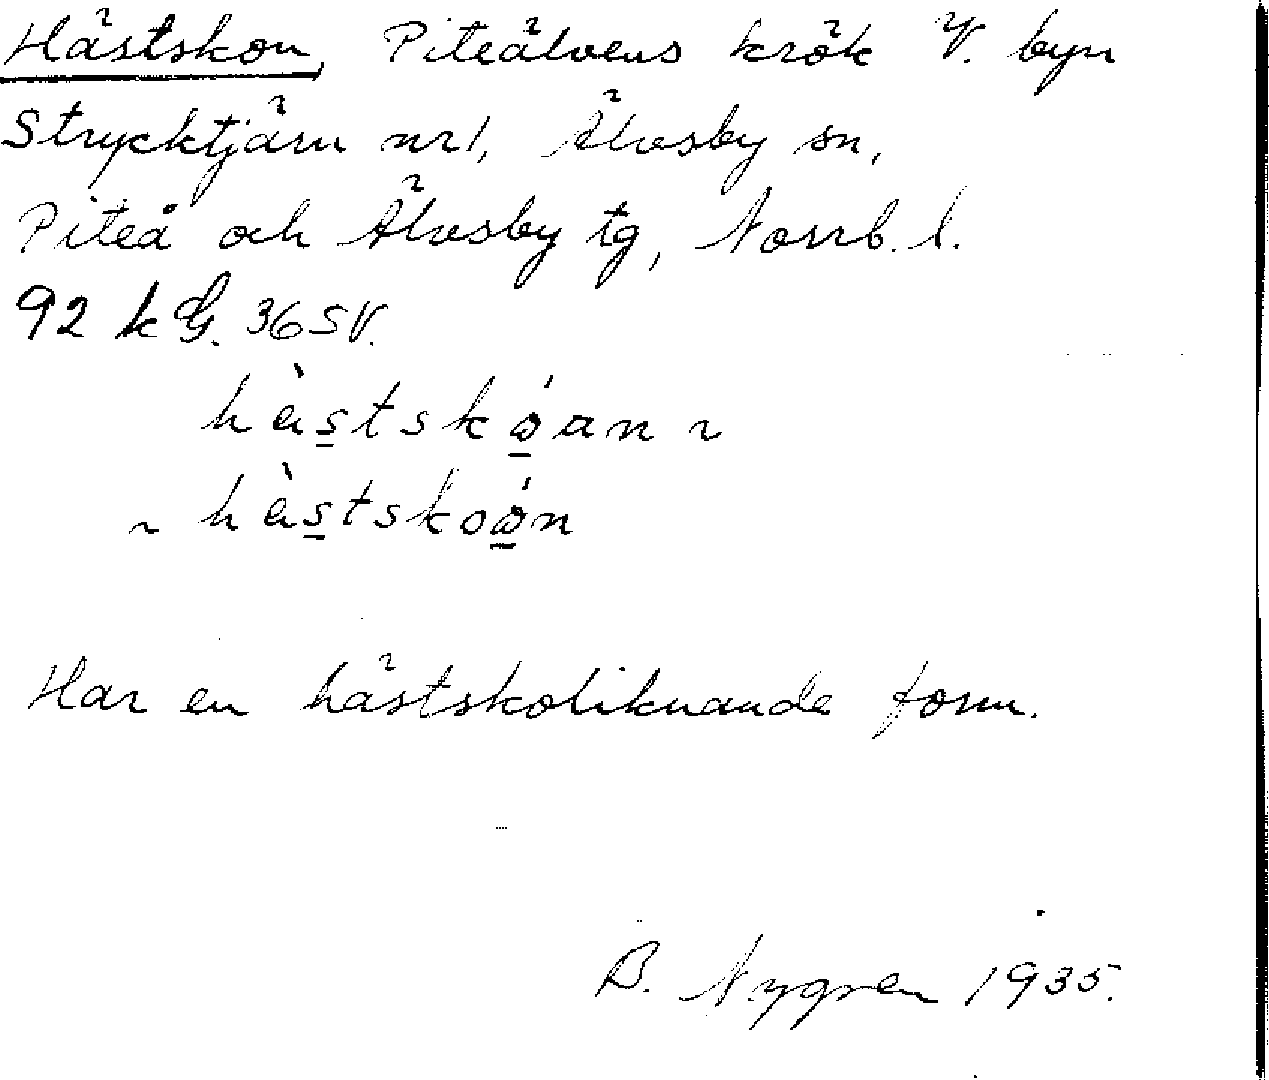 Hästskon, Piteälvens krök V. byn
Strycktjärn nr 1, Älvsby sn,
Piteå och Älvsby tg, Norrb. l.
92 k G. 36 SV.
hä̀s̲tskö̲́an ~
~ hä̀s̲tskoö̲́n
Har en hästskoliknande form.
B. Nygren 1935.